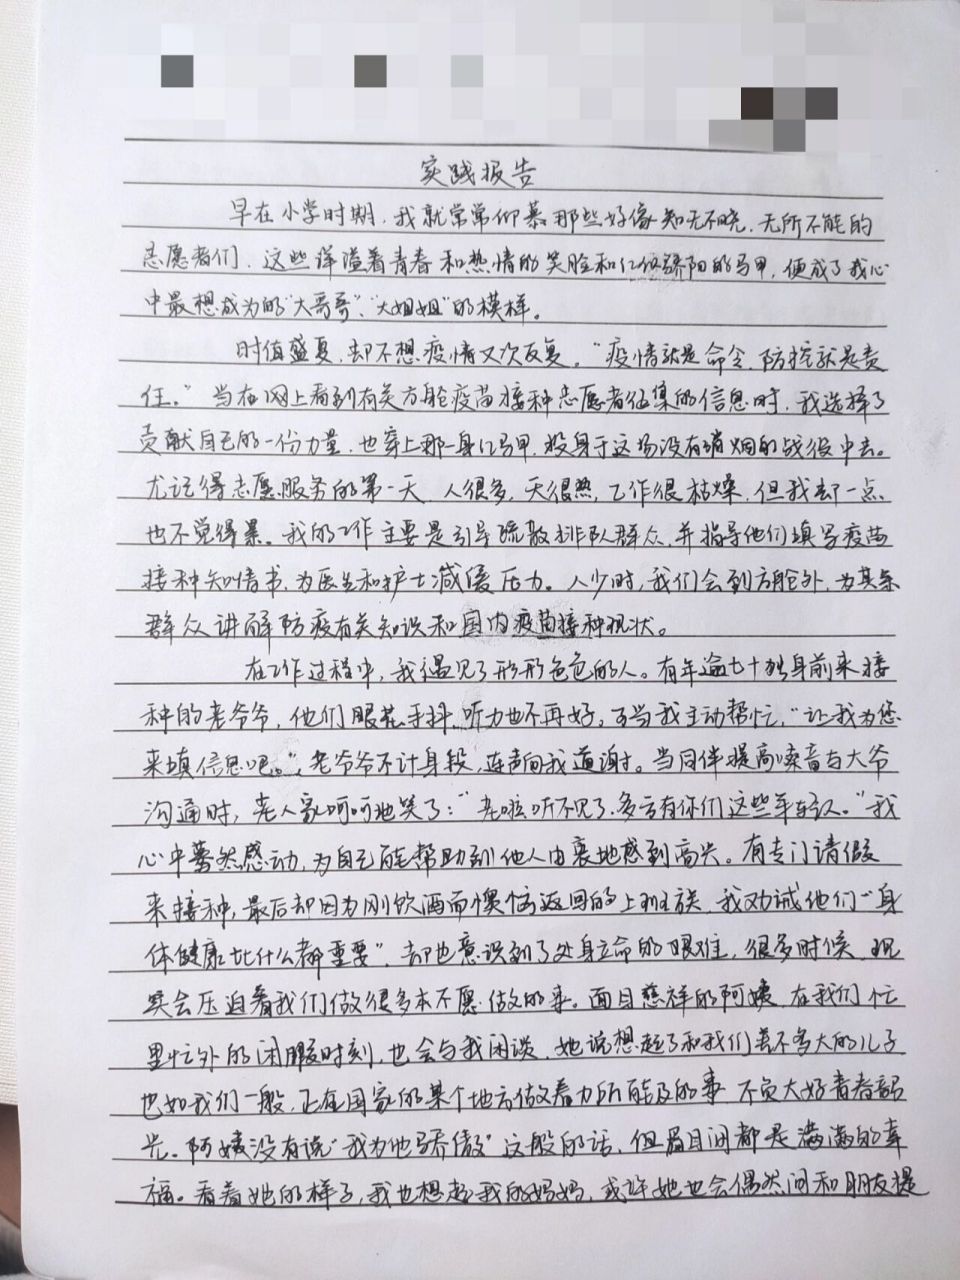 实践报告
早在小学时期，我就常常仰慕那些好像知无不晓、无所不能的
志愿者们，这些洋溢着青春和热情的笑脸和红似骄阳的马甲，便成了我心
中最想成为的“大哥哥”、“大姐姐”的模样。
时值盛夏，却不想疫情又次反复。“疫情就是命令，防控就是责
任。”当在网上看到有关方舱疫苗接种志愿者征集的信息时，我选择了
贡献自己的一份力量，也穿上那一身红马甲，投身于这场没有硝烟的战役中去。
尤记得志愿服务的第一天，人很多，天很热，工作很枯燥，但我却一点
也不觉得累。我的工作主要是引导疏散排队群众，并指导他们填写疫苗
接种知情书，为医生和护士减缓压力。人少时，我们会到方舱外，为其余
群众讲解防疫有关知识和国内疫苗接种现状。
在工作过程中，我遇见了形形色色的人。有年逾七十独身前来接
种的老爷爷，他们眼花手抖，听力也不再好，可当我主动帮忙，“让我为您
来填信息吧。”，老爷爷不计身段，连声向我道谢。当同伴提高嗓音与大爷
沟通时，老人家呵呵地笑了：“老啦听不见了，多亏有你们这些年轻人。”我
心中蓦然感动，为自己能帮助到他人由衷地感到高兴。有专门请假
来接种，最后却因为刚饮酒而懊恼返回的上班族，我劝诫他们“身
体健康比什么都重要”，却也意识到了处身立命的艰难，很多时候，现
实会压迫着我们做很多本不愿做的事。面目慈祥的阿姨，在我们忙
里忙外的闲暇时刻，也会与我闲谈，她说想起了和我们差不多大的儿子
也如我们一般，正在国家的某个地方做着力所能及的事，不负大好青春韶
光。阿姨没有说“我为他骄傲”这般的话，但眉目间都是满满的幸
福。看着她的样子，我也想起我的妈妈，或许她也会偶然间和朋友提